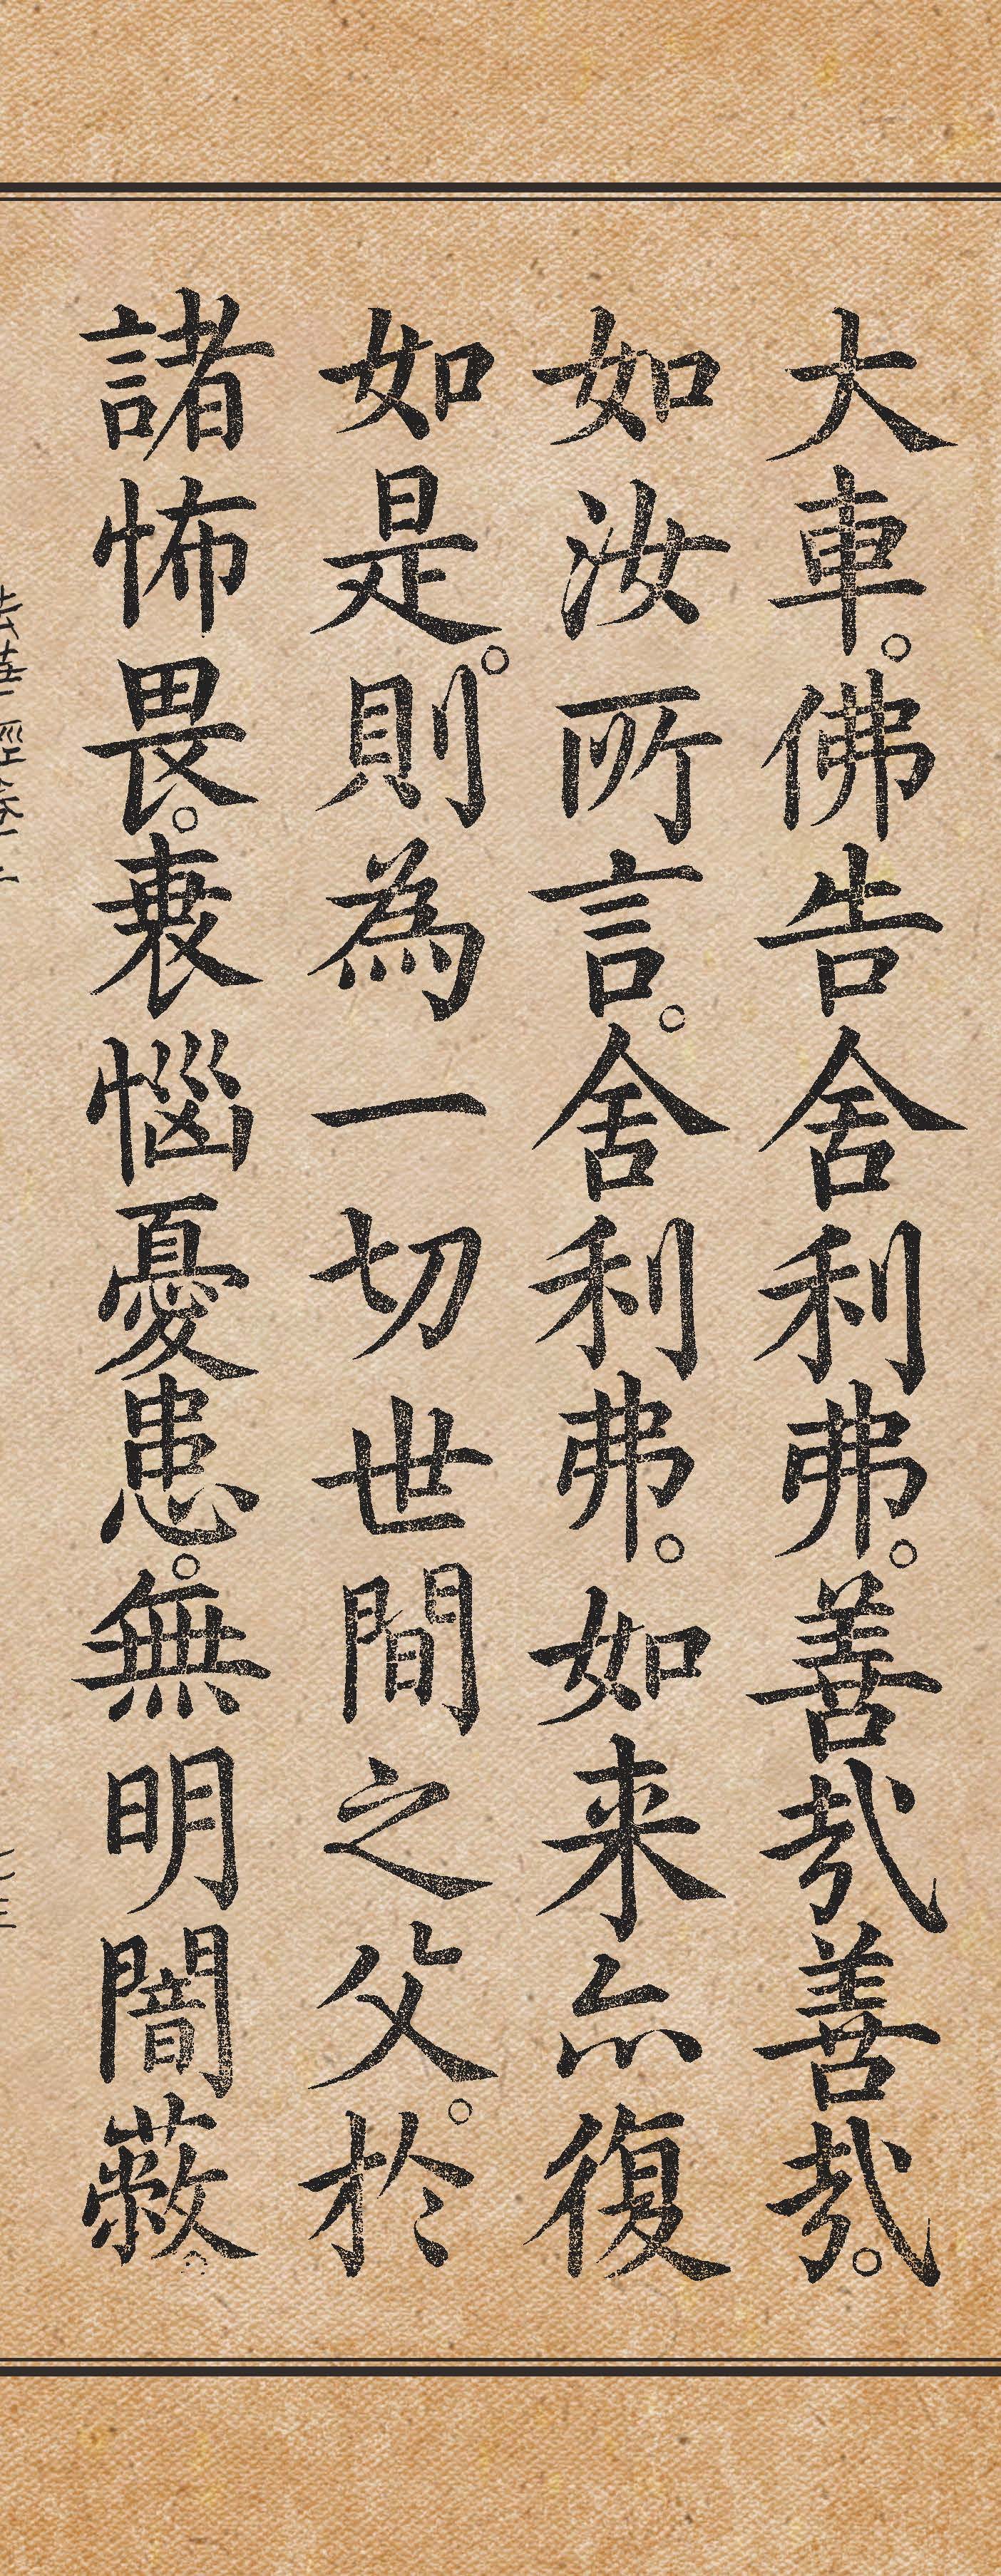 大車。佛告舍利弗。善哉善哉。
如汝所言。舍利弗。如来亦復
如是。則為一切世間之父。於
諸怖畏。衰惱憂患。無明闇蔽。